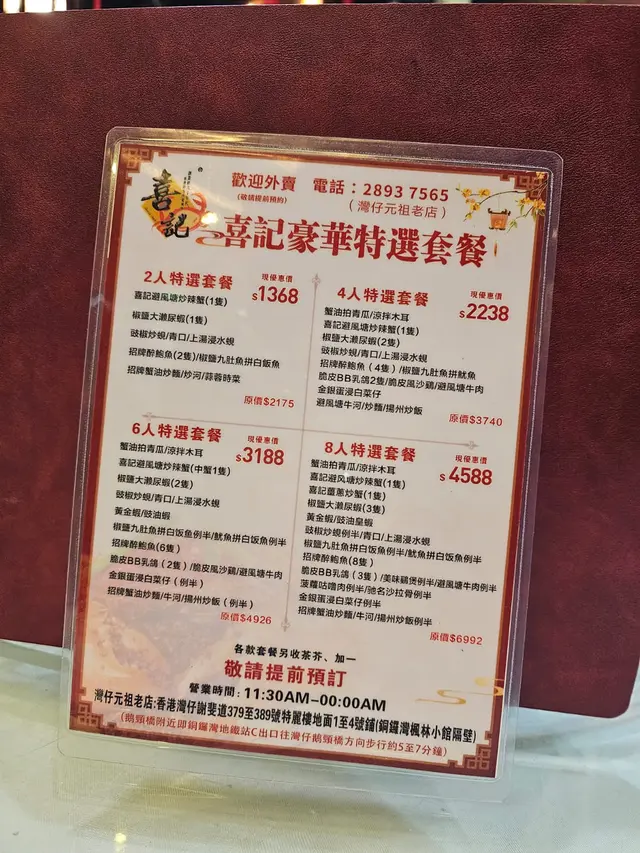 喜記
歡迎外賣 電話：2893 7565
(敬請提前預約)
(灣仔元祖老店)
喜記豪華特選套餐
2人特選套餐
現優惠價
$1368
喜記避風塘炒辣蟹(1隻)
椒鹽大瀨尿蝦(1隻)
豉椒炒蜆/青口/上湯浸水蜆
招牌醉鮑魚(2隻)/椒鹽九肚魚拼白飯魚
招牌蟹油炒麵/炒河/蒜蓉時菜
原價$2175
4人特選套餐
現優惠價
$2238
蟹油拍青瓜/涼拌木耳
喜記避風塘炒辣蟹(1隻)
椒鹽大瀨尿蝦(2隻)
豉椒炒蜆/青口/上湯浸水蜆
招牌醉鮑魚（4隻）/椒鹽九肚魚拼魷魚
脆皮BB乳鴿2隻/脆皮風沙鷄/避風塘牛肉
金銀蛋浸白菜仔
避風塘牛河/炒麵/揚州炒飯
原價$3740
6人特選套餐
現優惠價
$3188
蟹油拍青瓜/涼拌木耳
喜記避風塘炒辣蟹(中蟹1隻)
椒鹽大瀨尿蝦(2隻)
豉椒炒蜆/青口/上湯浸水蜆
黃金蝦/豉油蝦
椒鹽九肚魚拼白飯魚例半/魷魚拼白飯魚例半
招牌醉鮑魚(6隻)
脆皮BB乳鴿（2隻）/脆皮風沙鷄/避風塘牛肉
金銀蛋浸白菜仔（例半）
招牌蟹油炒麵/牛河/揚州炒飯（例半）
原價$4926
8人特選套餐
現優惠價
$4588
蟹油拍青瓜/涼拌木耳
喜記避风塘炒辣蟹(1隻)
喜記薑蔥炒蟹(1隻)
椒鹽大瀨尿蝦(3隻)
黃金蝦/豉油皇蝦
豉椒炒蜆例半/青口/上湯浸水蜆
椒鹽九肚魚拼白飯魚例半/魷魚拼白飯魚例半
招牌醉鮑魚(8隻)
脆皮BB乳鴿（3隻）/美味鷄煲例半/避風塘牛肉例半
菠蘿咕嚕肉例半/馳名沙拉骨例半
金銀蛋浸白菜仔例半
招牌蟹油炒麵/牛河/揚州炒飯例半
原價$6992
各款套餐另收茶芥、加一
敬請提前預訂
營業時間：11:30AM—00:00AM
灣仔元祖老店:香港灣仔謝斐道379至389號特麗樓地面1至4號鋪(銅鑼灣楓林小館隔壁)
(鵝頸橋附近即銅鑼灣地鐵站C出口往灣仔鵝頸橋方向步行約5至7分鐘)